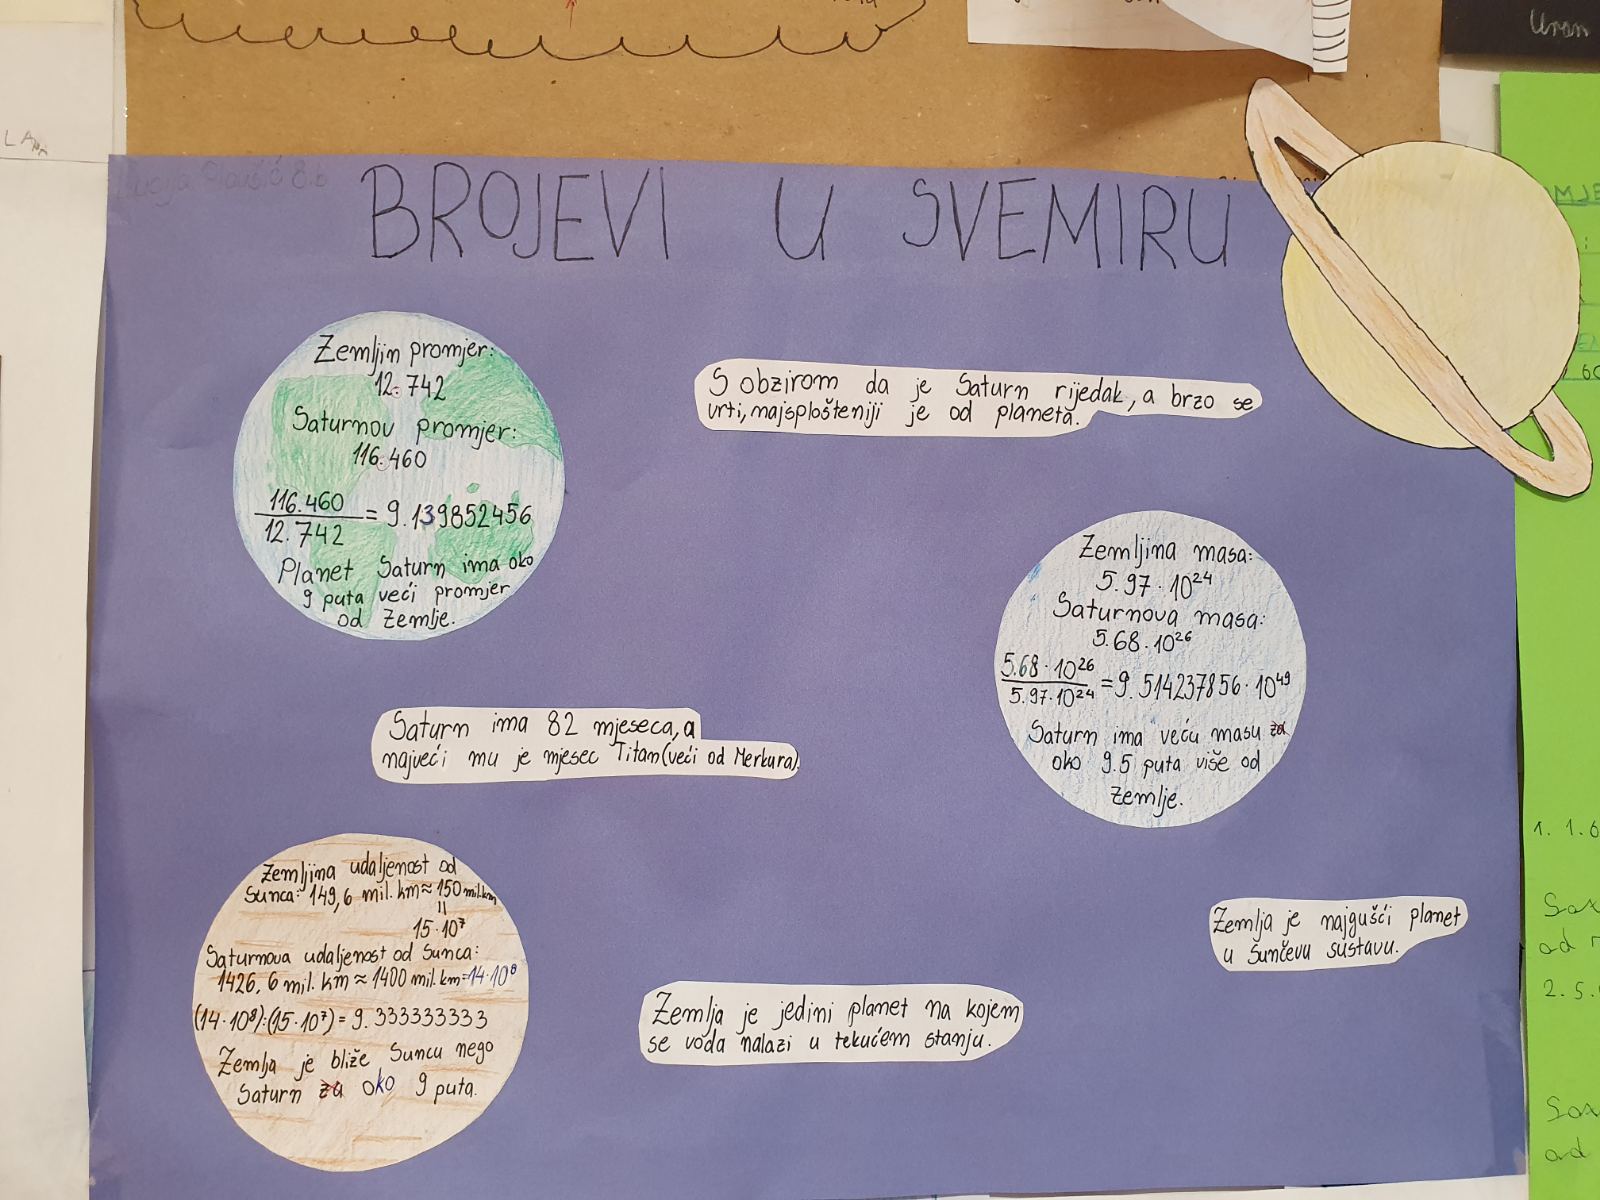 Uran
BROJEVI U SVEMIRU
Zemljin promjer:
12.742
Saturnov promjer:
116.460
116.460
12.742
= 9.139852456
Planet Saturn ima oko
9 puta veći promjer
od Zemlje.
S obzirom da je Saturn rijedak, a brzo se
vrti, majsplošteniji je od planeta.
Zemljina masa:
5.97 · 10²⁴
Saturnova masa:
5.68 · 10²⁶
5.68 · 10²⁶
5.97 · 10²⁴
= 9.514237856 · 10⁴⁹
Saturn ima veću masu za
oko 9.5 puta više od
Zemlje.
Saturn ima 82 mjeseca, a
najveći mu je mjesec Titan (veći od Merkura).
Zemljina udaljenost od
Sunca: 149,6 mil. km ≈ 150 mil. km
=
15 · 10⁷
Saturnova udaljenost od Sunca:
1426,6 mil. km ≈ 1400 mil. km = 14 · 10⁸
(14 · 10⁸):(15 · 10⁷) = 9.333333333
Zemlja je bliže Suncu nego
Saturn za oko 9 puta.
Zemlja je najgušći planet
u Sunčevu sustavu.
Zemlja je jedini planet na kojem
se voda nalazi u tekućem stanju.